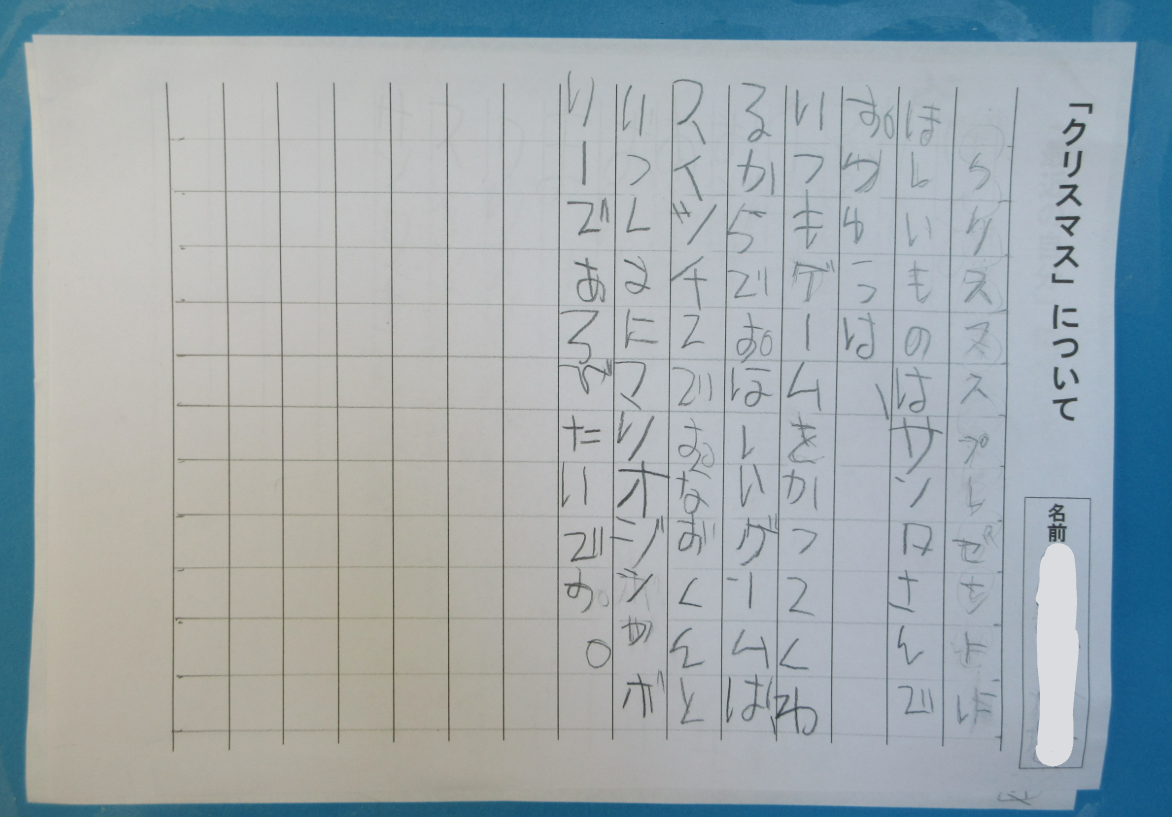 「クリスマス」について
名前
クリススマスプレゼもよに
ほしいものはサンタさんで
す。ゆゆっは、
いつもゲームをかってくれ
るからです。ほしいゲームは、
スイッチ2です。なおくんと
いっしょにマリオジンカボ
リーであろびたいです。